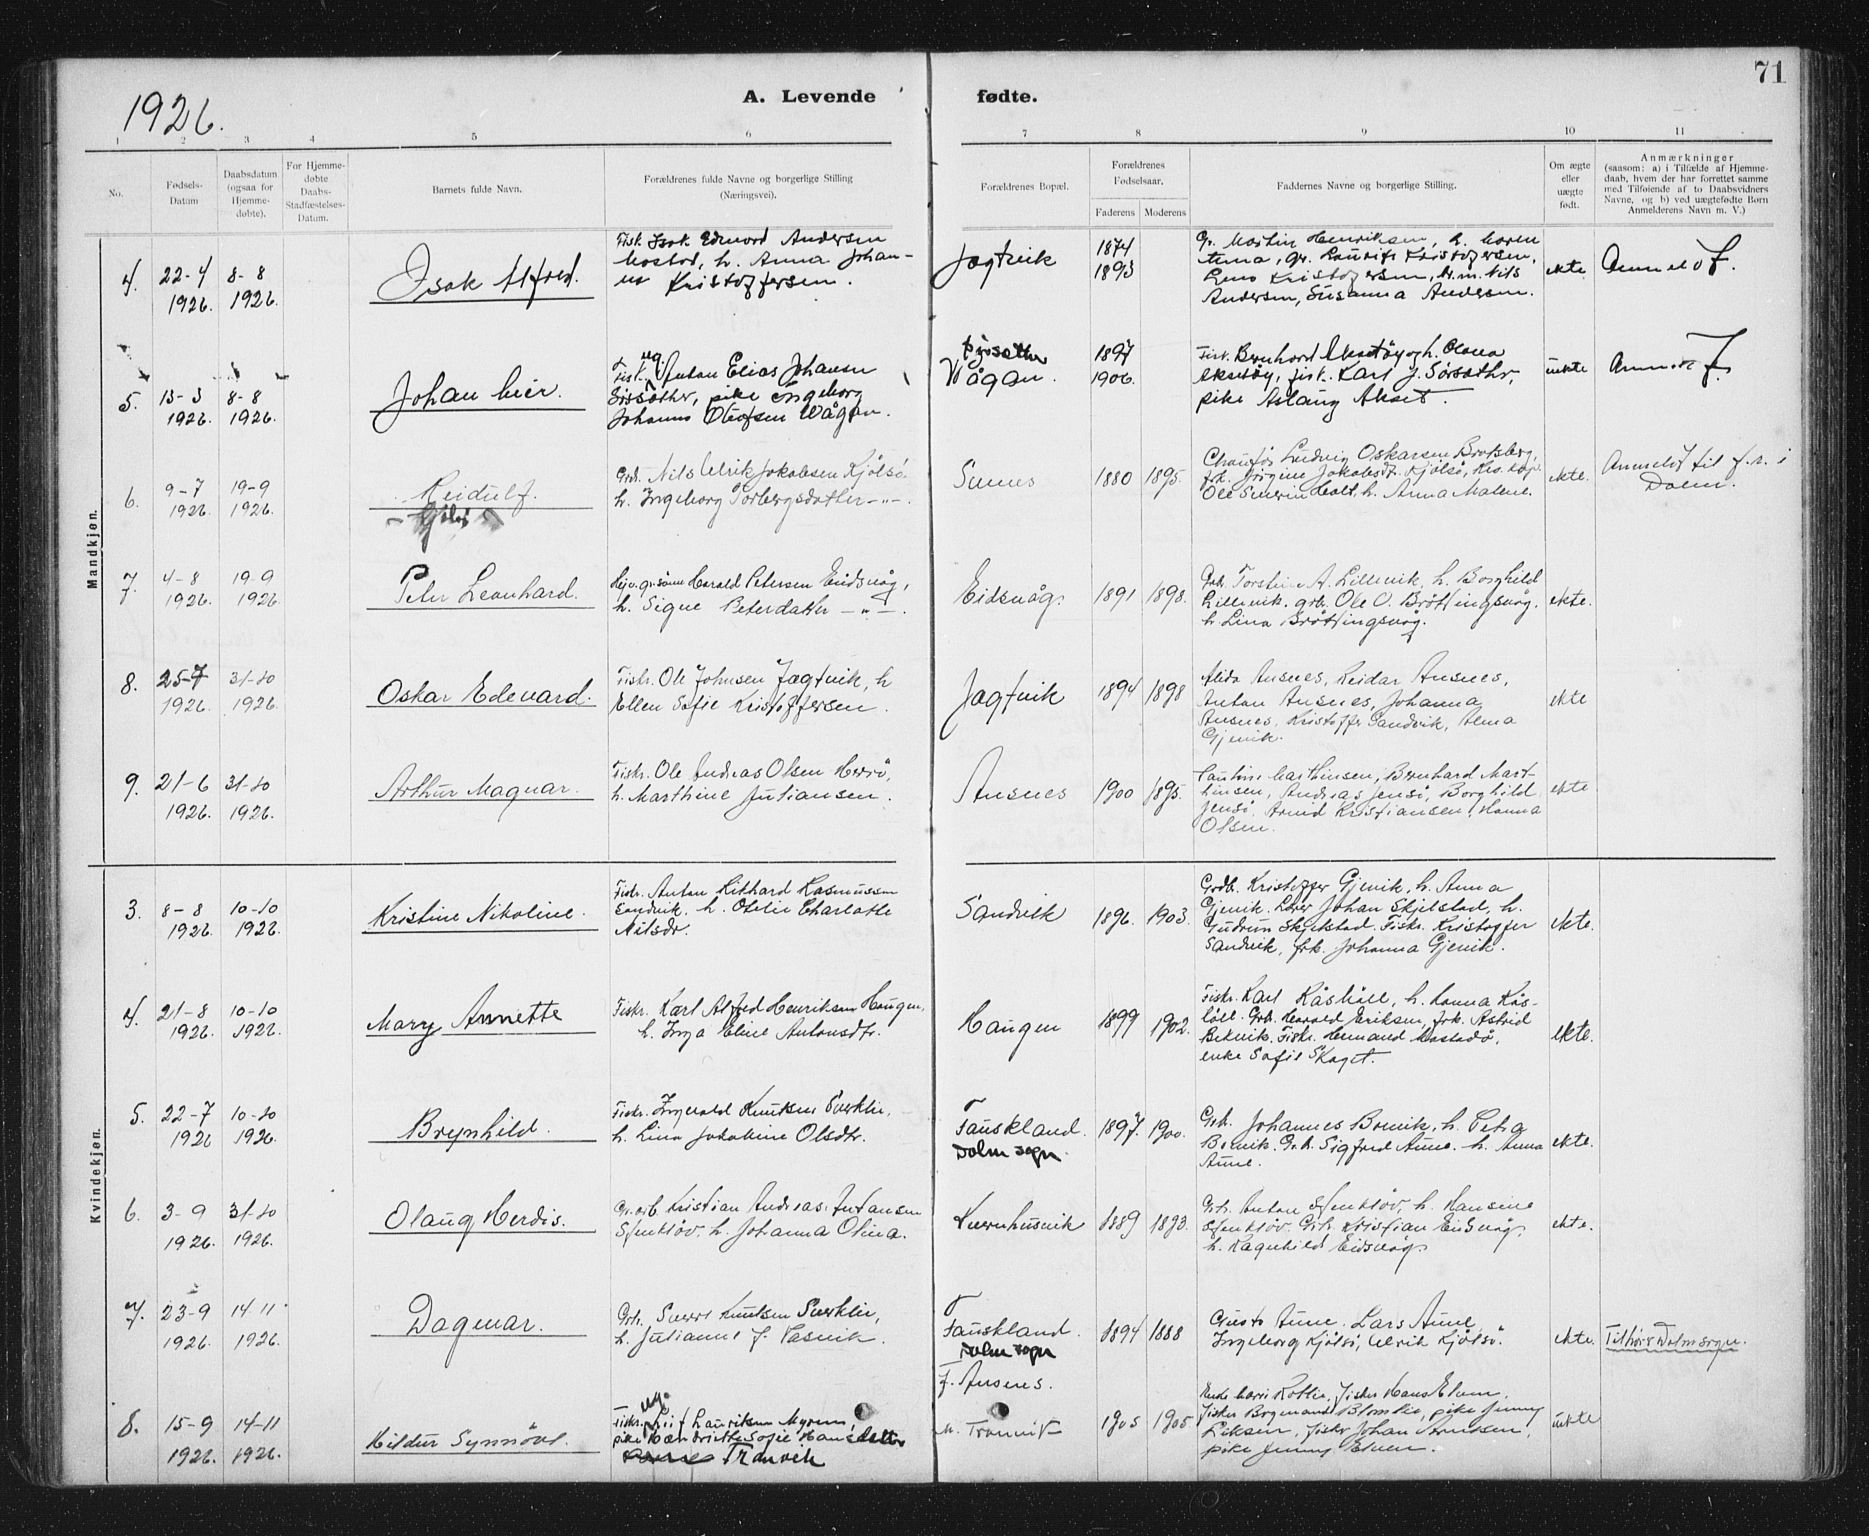 71
1926.
A. Levende fødte.
1 2 3 4 5 6 7 8 9 10 11
No.
Fødsels-
Datum
Daabsdatum
(ogsaa for
Hjemme-
døbte).
For Hjemme-
døbte
Daabs-
Stadfæstelses-
Datum.
Barnets fulde Navn.
Forældrenes fulde Navne og borgerlige Stilling
(Næringsvei).
Forældrenes Bopæl.
Forældrenes
Fødselsaar.
Faderens Moderens
Faddernes Navne og borgerlige Stilling.
Om ægte
eller
uægte
født.
Anmærkninger
(saasom: a) i Tilfælde af Hjemme-
daab, hvem der har forrettet samme
med Tilføiende af to Daabsvidners
Navne, og b) ved uægtefødte Børn
Anmelderens Navn m. V.)
Mandkjøn.
4. 22-4 1926. 8-8 1926.
Isak Alfred.
Fisk. Isak Edvard Andersen
h. Anna Johan-
Kristoffersen.
Jøgtvik
1874
1893
Gr. Martin Henriksen, h. Maren
Anna, gr. Laurits Kristoffersen,
Kristoffersen, Nils
Andersen, Susanna Andersen.
ekte
5. 13-3 1926. 8-8 1926.
Johan
Fisk. ug. Anton Elias Johansen
pike Ingeborg
Olufsen Vågan.
Vågan.
1897
1906.
Fisk. Bernhard h. Olava
fisk. Karl J.
pike Aslaug Akset.
uekte
6. 9-7 1926. 19-9 1926.
Reidulf.
Grd. Nils Ulrik Jakobsen Kjølsø
h. Ingeborg Torbergsdatter -"-.
Sunes
1880 1895.
Chauffør Ludvig Oskarsen
frk. Jørgine Jakobsdt. Kjølsø,
Ole Severin h. Anna Malene.
ekte.
Anmeldt til f.r. i
Dolm.
7. 4-8 1926. 19-9 1926.
Peter Leonhard.
gr. sønn Harald Petersen Eidsvåg,
h. Signe Petersdatter -"-.
Eidsvåg.
1891 1898.
Grbr. Torstein A. Lillevik, h. Borghild
Lillevik. grb. Ole O. Brøttingsvåg.
h. Lina Brøttingsvåg.
ekte.
8. 25-7 1926. 31-10 1926.
Oskar Edevard.
Fiskr. Ole Johnsen Jøgtvik, h
Ellen Sofie Kristoffersen.
Jøgtvik
1894 1898
Alida Ansnes, Reidar Ansnes,
Anton Ansnes, Johanna
Ansnes, Kristoffer Sandvik, Alma
Gjevik.
ekte
9. 21-6 1926. 31-10 1926.
Arthur Magnar.
Fiskr. Ole Andreas Olsen Herrø,
h. Marthine Juliansen.
Ansnes
1900 1895.
Marthinsen, Bernhard Mart-
hinsen, Andreas Jensø, Borghild
Jensø. Arvid Kristiansen, Hanna
Olsen.
ekte
Kvindekjøn.
3. 8-8 1926. 10-10 1926.
Kristine Nikoline.
Fiskr. Anton Rikhard Rasmussen
Sandvik. h. Otelie Charlotte
Nilsdr.
Sandvik
1896. 1903.
Grdb. Kristoffer Gjevik, h. Anna
Gjevik. Lærer Johan Skjelstad, h.
Gudrun Skjelstad. Fiskr. Kristoffer
Sandvik, frk. Johanna Gjevik.
ekte.
4. 21-8 1926. 10-10 1926.
Mary Annette
Fiskr. Karl Alfred Henriksen Haugen,
h. Inga Eline Antonsdtr.
Haugen
1899 1902.
Fiskr. Karl Råshåll, h. Hanna Rås-
håll. Grb. Harald Eriksen, frk. Astrid
Fiskr. Hermand
enke Sofie Skaget.
ekte.
5. 22-7 1926 10-10 1926.
Brynhild.
Fiskr. Ingvald Knutsen
h. Lina Jakobine Olsdtr.
Fauskland.
Dolm sogn.
1897. 1900.
Grb. Johannes Borvik, h. Petra
Borvik. Grb. Sigfred Aune. h. Anna
Aune.
ekte.
6. 3-9 1926. 31-10 1926.
Olaug Herdis.
Gr.arb. Kristian Andreas Antonsen
h. Johanna Olina.
Kvernhusvik
1889 1893.
Grb. Anton h. Hansine
Grb. Kristian Eidsvåg.
h. Ragnhild Eidsvåg.
ekte.
7. 23-9 1926. 14-11 1926.
Dagmar.
Grb. Sverre Knutsen
h. Julianne J.
Fauskland.
Dolm sogn
1894 1888
Gusta Aune. Lars Aune,
Ingeborg Kjølsø, Ulrik Kjølsø.
ekte.
Tilhører Dolm sogn.
8. 15-9 1926. 14-11 1926.
Hildur Synnøve.
Fiskr. ug. Leif Lauriksen Myren,
pike Hendriette Sofie Hansdatter
Tranvik
F. Ansnes.
M. Tranvik
1905 1905
Fisker Hans Elven.
Fisker Blomlie, pike Jenny
Eriksen, Fisker Johan Arntsen,
pike Jenny Elven.
uekte